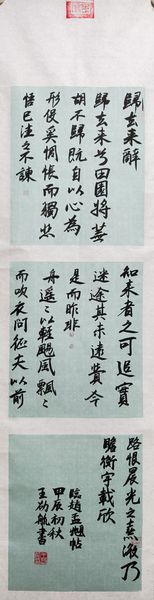 歸去来辭
歸去来兮田園將蕪
胡不歸既自以心為
形役奚惆悵而獨悲
悟已往之不諫
知来者之可追實
迷途其未遠覺今
是而昨非
舟遥遥以輕颺風飄飄
而吹衣問征夫以前
路恨晨光之熹微乃
瞻衡宇載欣
臨趙孟頫帖
甲辰初秋
王書